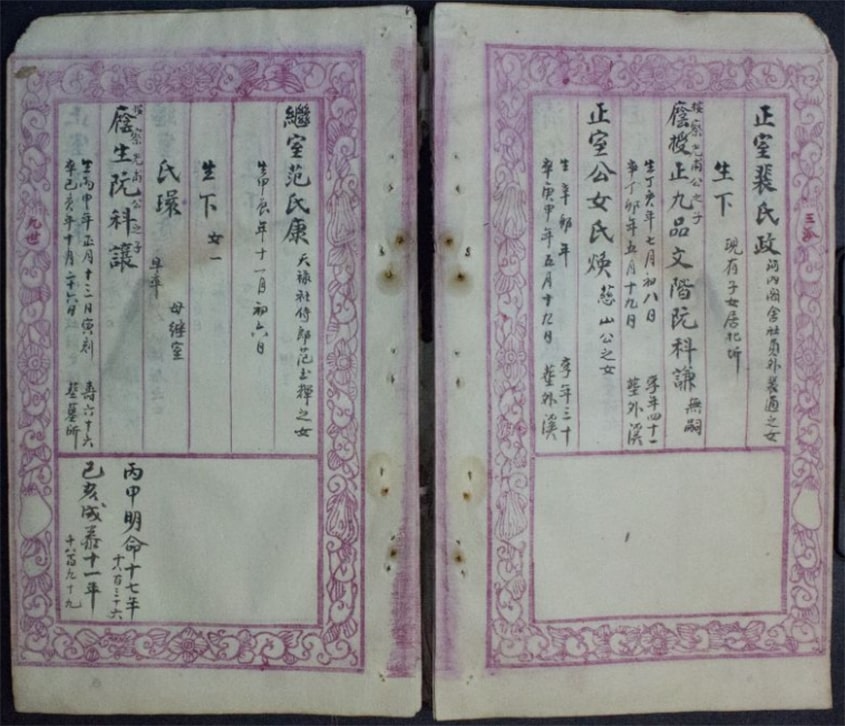 三派
正室裴氏政 河內國舍社員外裴適之女
生下 現有子女居北圻
按察光甫公之子
廕授正九品文階阮科謙 無嗣
生丁亥年七月初八日 享年四十一
卒丁卯年五月十九日 葬外溪
正室公女氏煥 慈山公之女
生辛卯年 享年三十
卒庚申年五月十九日 葬外溪
繼室范氏康 天祿社侍郎范玉揮之女
生甲辰年十一月初六日
生下 女一
氏環 早卒 母繼室
按察光甫公之子
廕生阮科讓
生丙申年正月十三日寅刻 壽六十六
卒己亥年十月二十六日 葬墓所
丙申明命十七年
十八百三十六
己亥成泰十一年
十八百九十九
九世